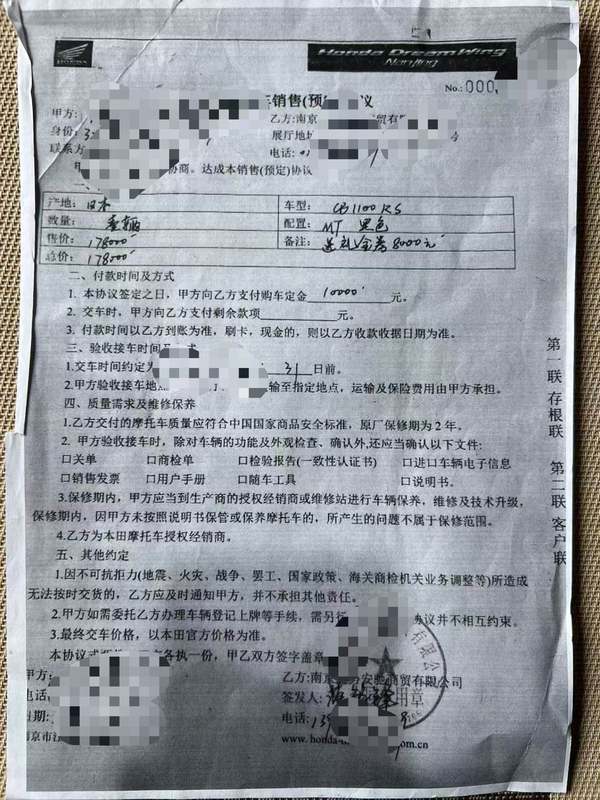 HONDA
Honda DreamWing
Nanjing
No.: 000,
销售(预定)协议
甲方:
乙方:南京 贸有
身份:3
展厅地址
联系方
电话:
协商。达成本销售(预定)协议
产地: 日本
车型: CB1100RS
数量: 壹辆
配置: MT 黑色
售价: 178000
备注: 送礼金券8000元
总价: 178000
二、付款时间及方式
1. 本协议签定之日,甲方向乙方支付购车定金 10000 元。
2. 交车时,甲方向乙方支付剩余款项 元。
3. 付款时间以乙方到账为准,刷卡,现金的,则以乙方收款收据日期为准。
三、验收接车时间及方式
1.交车时间约定为 31 日前。
2.甲方验收接车地 输至指定地点,运输及保险费用由甲方承担。
四、质量需求及维修保养
1.乙方交付的摩托车质量应符合中国国家商品安全标准,原厂保修期为 2 年。
2. 甲方验收接车时,除对车辆的功能及外观检查、确认外,还应当确认以下文件:
口关单 口商检单 口检验报告(一致性认证书) 口进口车辆电子信息
口销售发票 口用户手册 口随车工具 口说明书。
3.保修期内,甲方应当到生产商的授权经销商或维修站进行车辆保养,维修及技术升级,
保修期内,因甲方未按照说明书保管或保养摩托车的,所产生的问题不属于保修范围。
4.乙方为本田摩托车授权经销商。
五、其他约定
1.因不可抗拒力(地震、火灾、战争、罢工、国家政策、海关商检机关业务调整等)所造成
无法按时交货的,乙方应及时通知甲方,并不承担其他责任。
2.甲方如需委托乙方办理车辆登记上牌等手续,需另 协议并不相互约束。
3.最终交车价格,以本田官方价格为准。
本协议 各执一份,甲乙双方签字盖章
甲方:
乙方:南京 安 商贸有限公司
电话:
签发人:
日期:
电话:13
南京市
www.honda- om.cn
有限公
用章
第一联 存根联
第二联 客户联